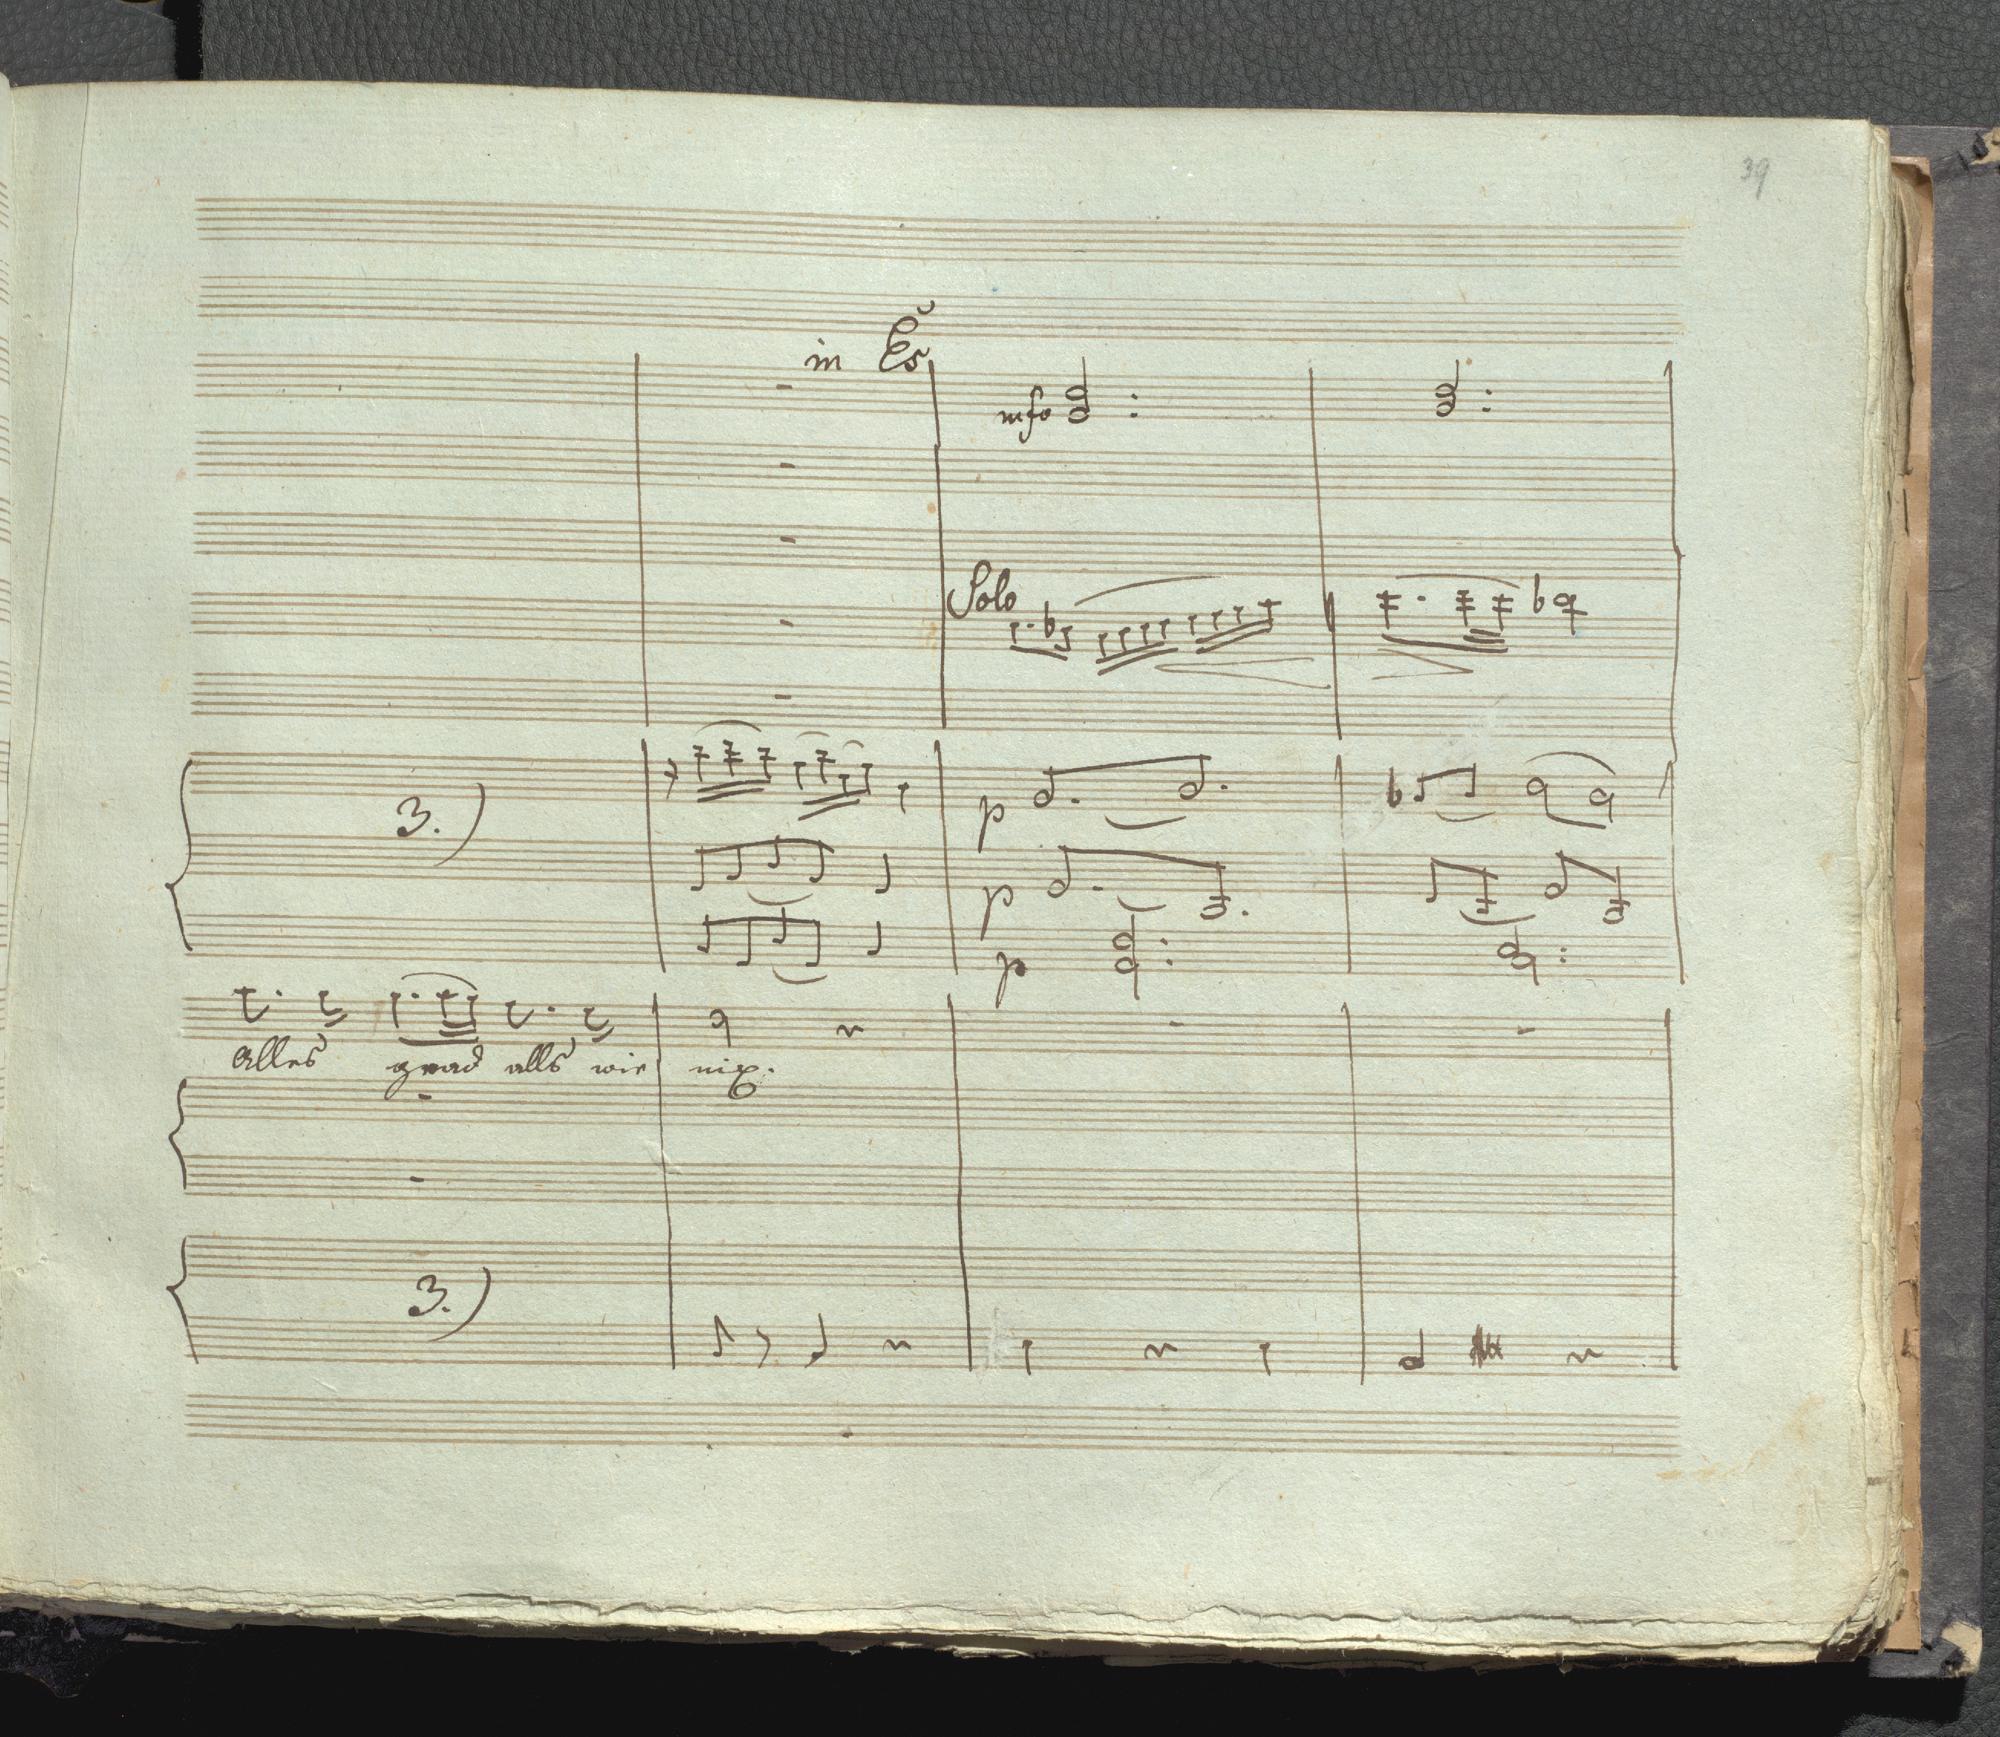 39
in Es
mfo
Solo
3.)
p
p
p
Alles grad alls wie nix.
3.)